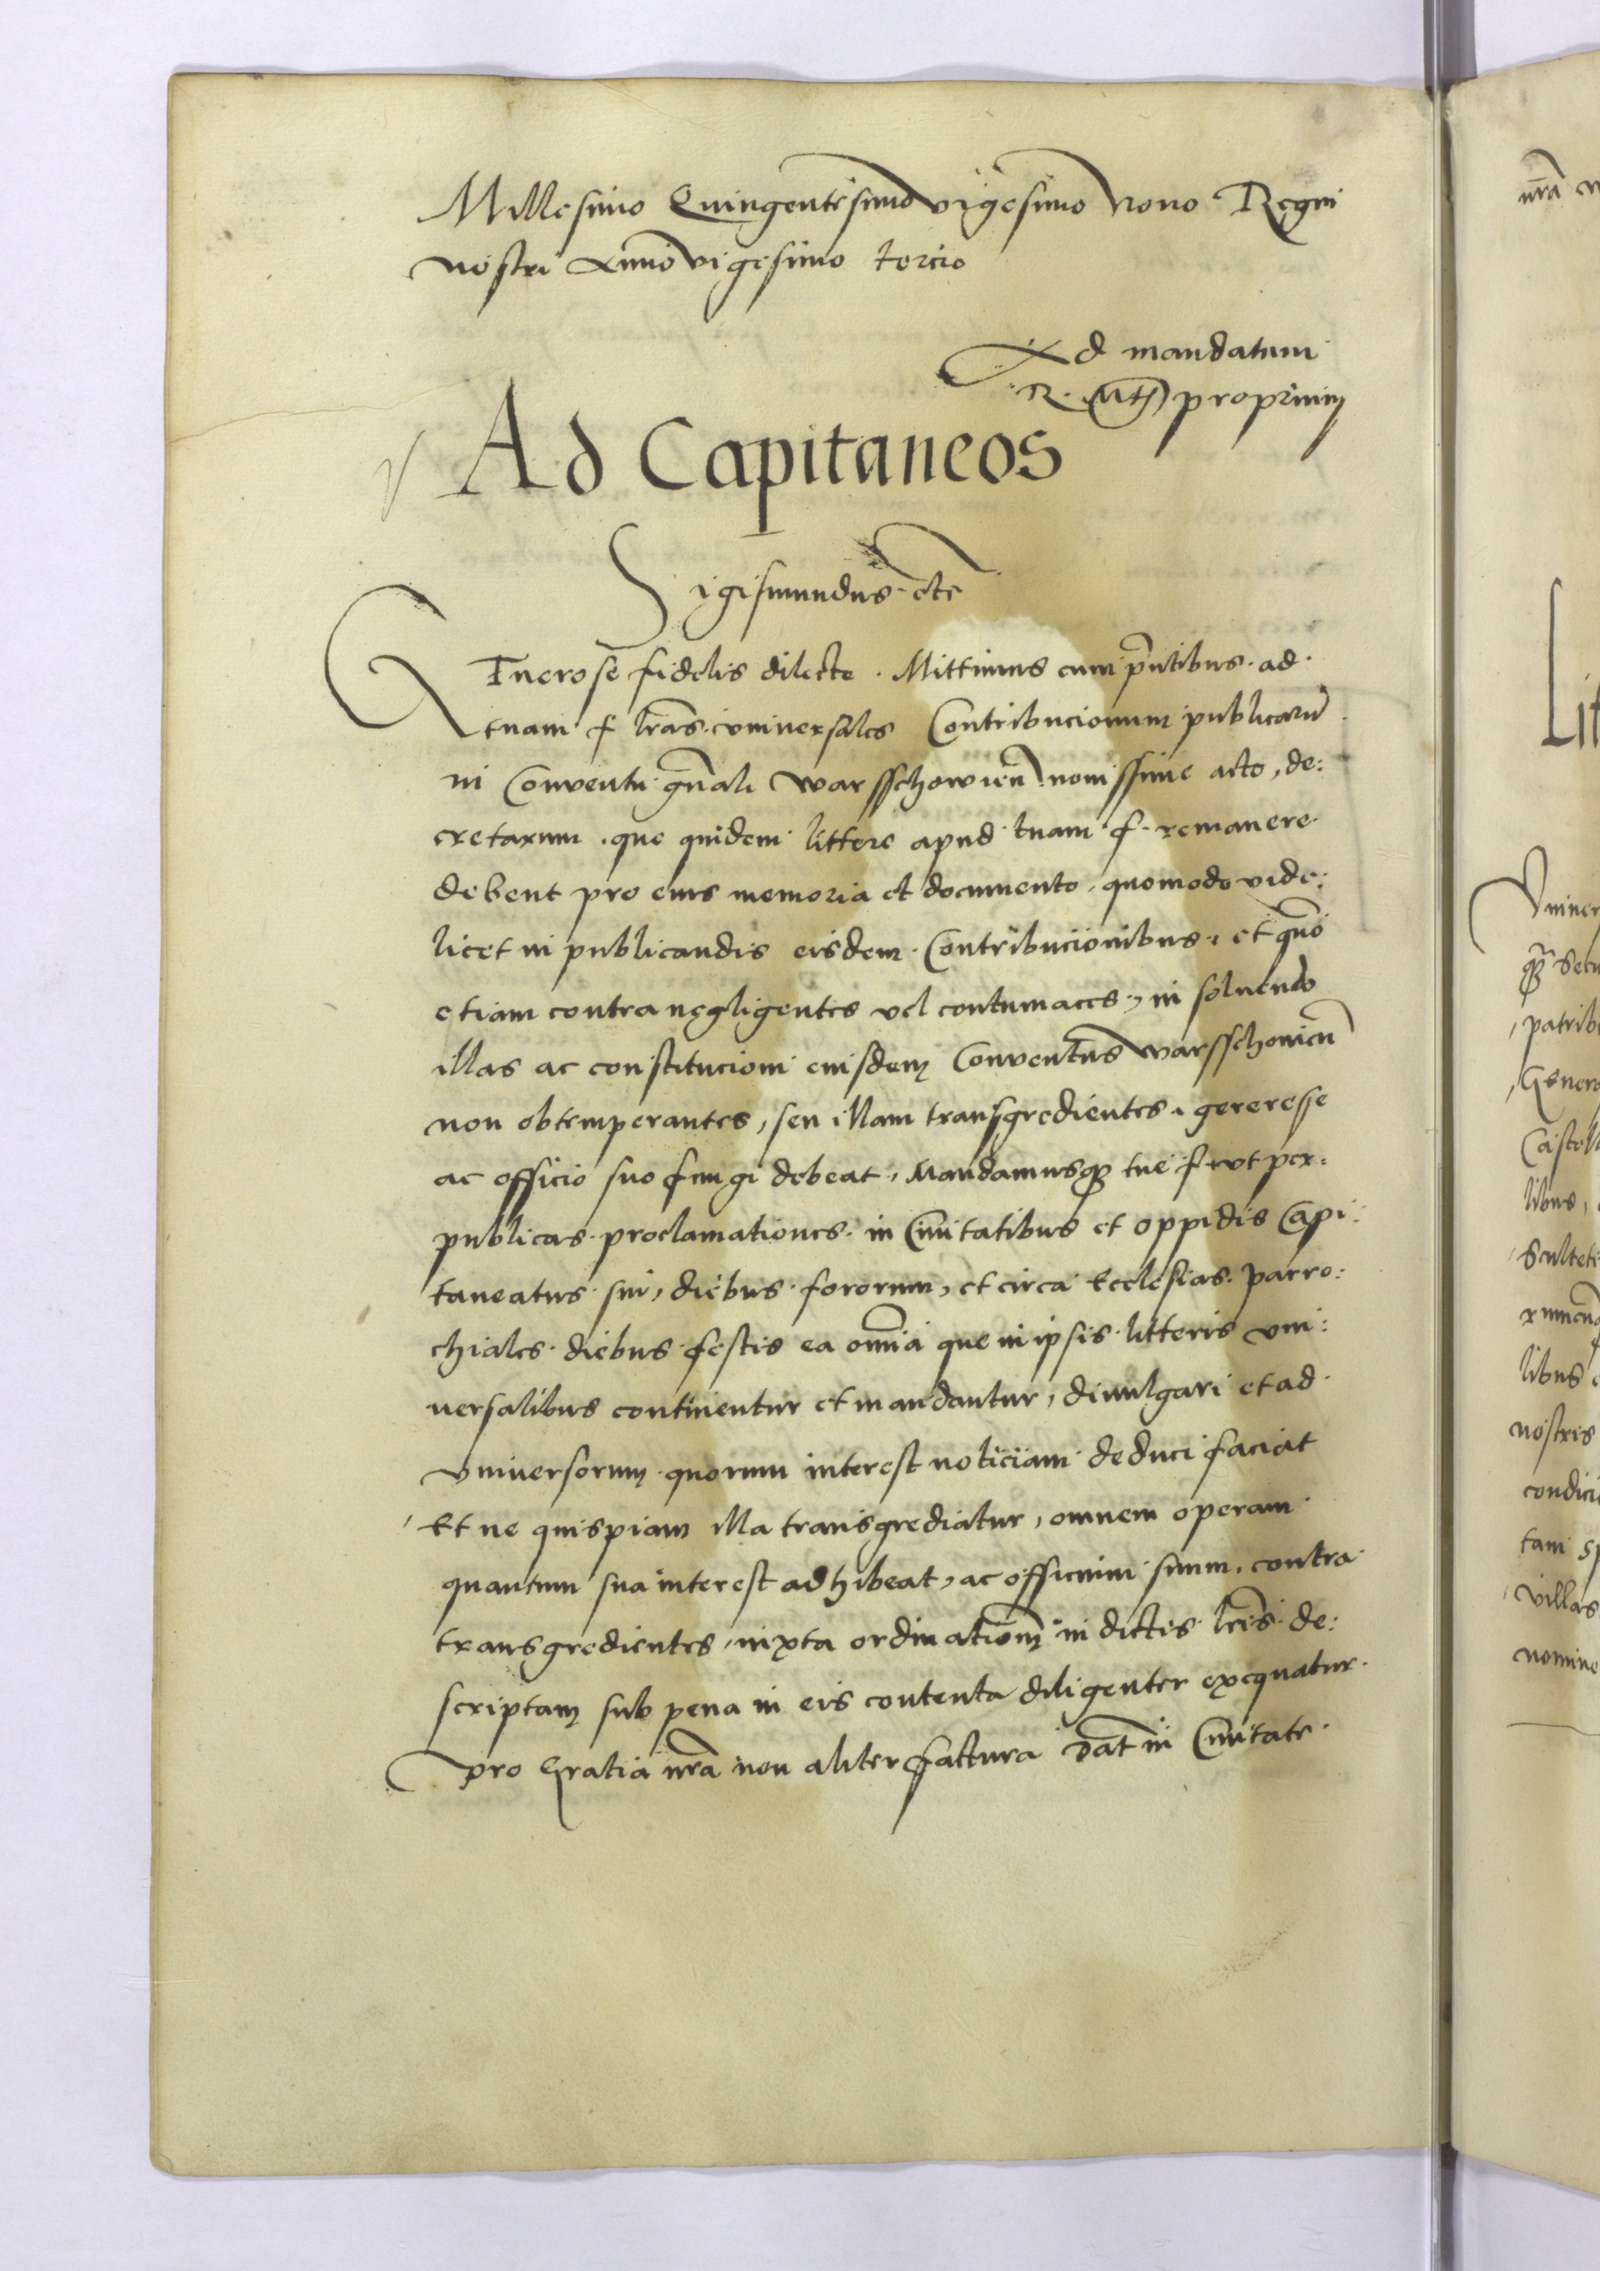 Millesimo Quingentesimo vigesimo nono Regni
nostri Anno vigesimo tercio
Ad mandatum
R. Mtis proprium
Ad Capitaneos
Sigismundus etc
Generose fidelis dilecte. Mittimus cum pntibus. ad.
tuam f lras. vniuersales Contribucionum publicaru
in Conventu gnali warsschowien nouissime acto, de:
cretarum. que quidem littere apud tuam f. remanere
debent pro eius memoria et documento, quomodo vide:
licet in publicandis eisdem. Contribucionibus, et quo
etiam contra negligentes vel contumaces, in soluendo
illas ac constitucioni eiusdem Conventus warsschouien
non obtemperantes, seu illam transgredientes, gererese
ac officio suo fungi debeat, Mandamusq tue f. vt per:
publicas. proclamationes. in Ciuitatibus et oppidis Capi:
taneatus. sui, diebus. fororum, et circa Ecclesias. parro:
chiales. diebus. festis ea omia que in ipsis. litteris vni:
uersalibus continentur et mandantur, diuulgari et ad
vniuersorum. quorum interest noticiam deduci faciat
Et ne quispiam illa transgrediatur, omnem operam
quantum sua interest adhibeat, ac officium suum. contra
transgredientes, iuxta ordinationem in dictis lris. de:
scriptam sub pena in eis contenta diligenter exequatur.
pro Gratia nra non aliter factura Dat in Ciuitate.
nra
Lit
Vniuer
patrib
Genero
Castell
libus,
Sculteti
libus
nostris
condici
tam sp
villas
nomine